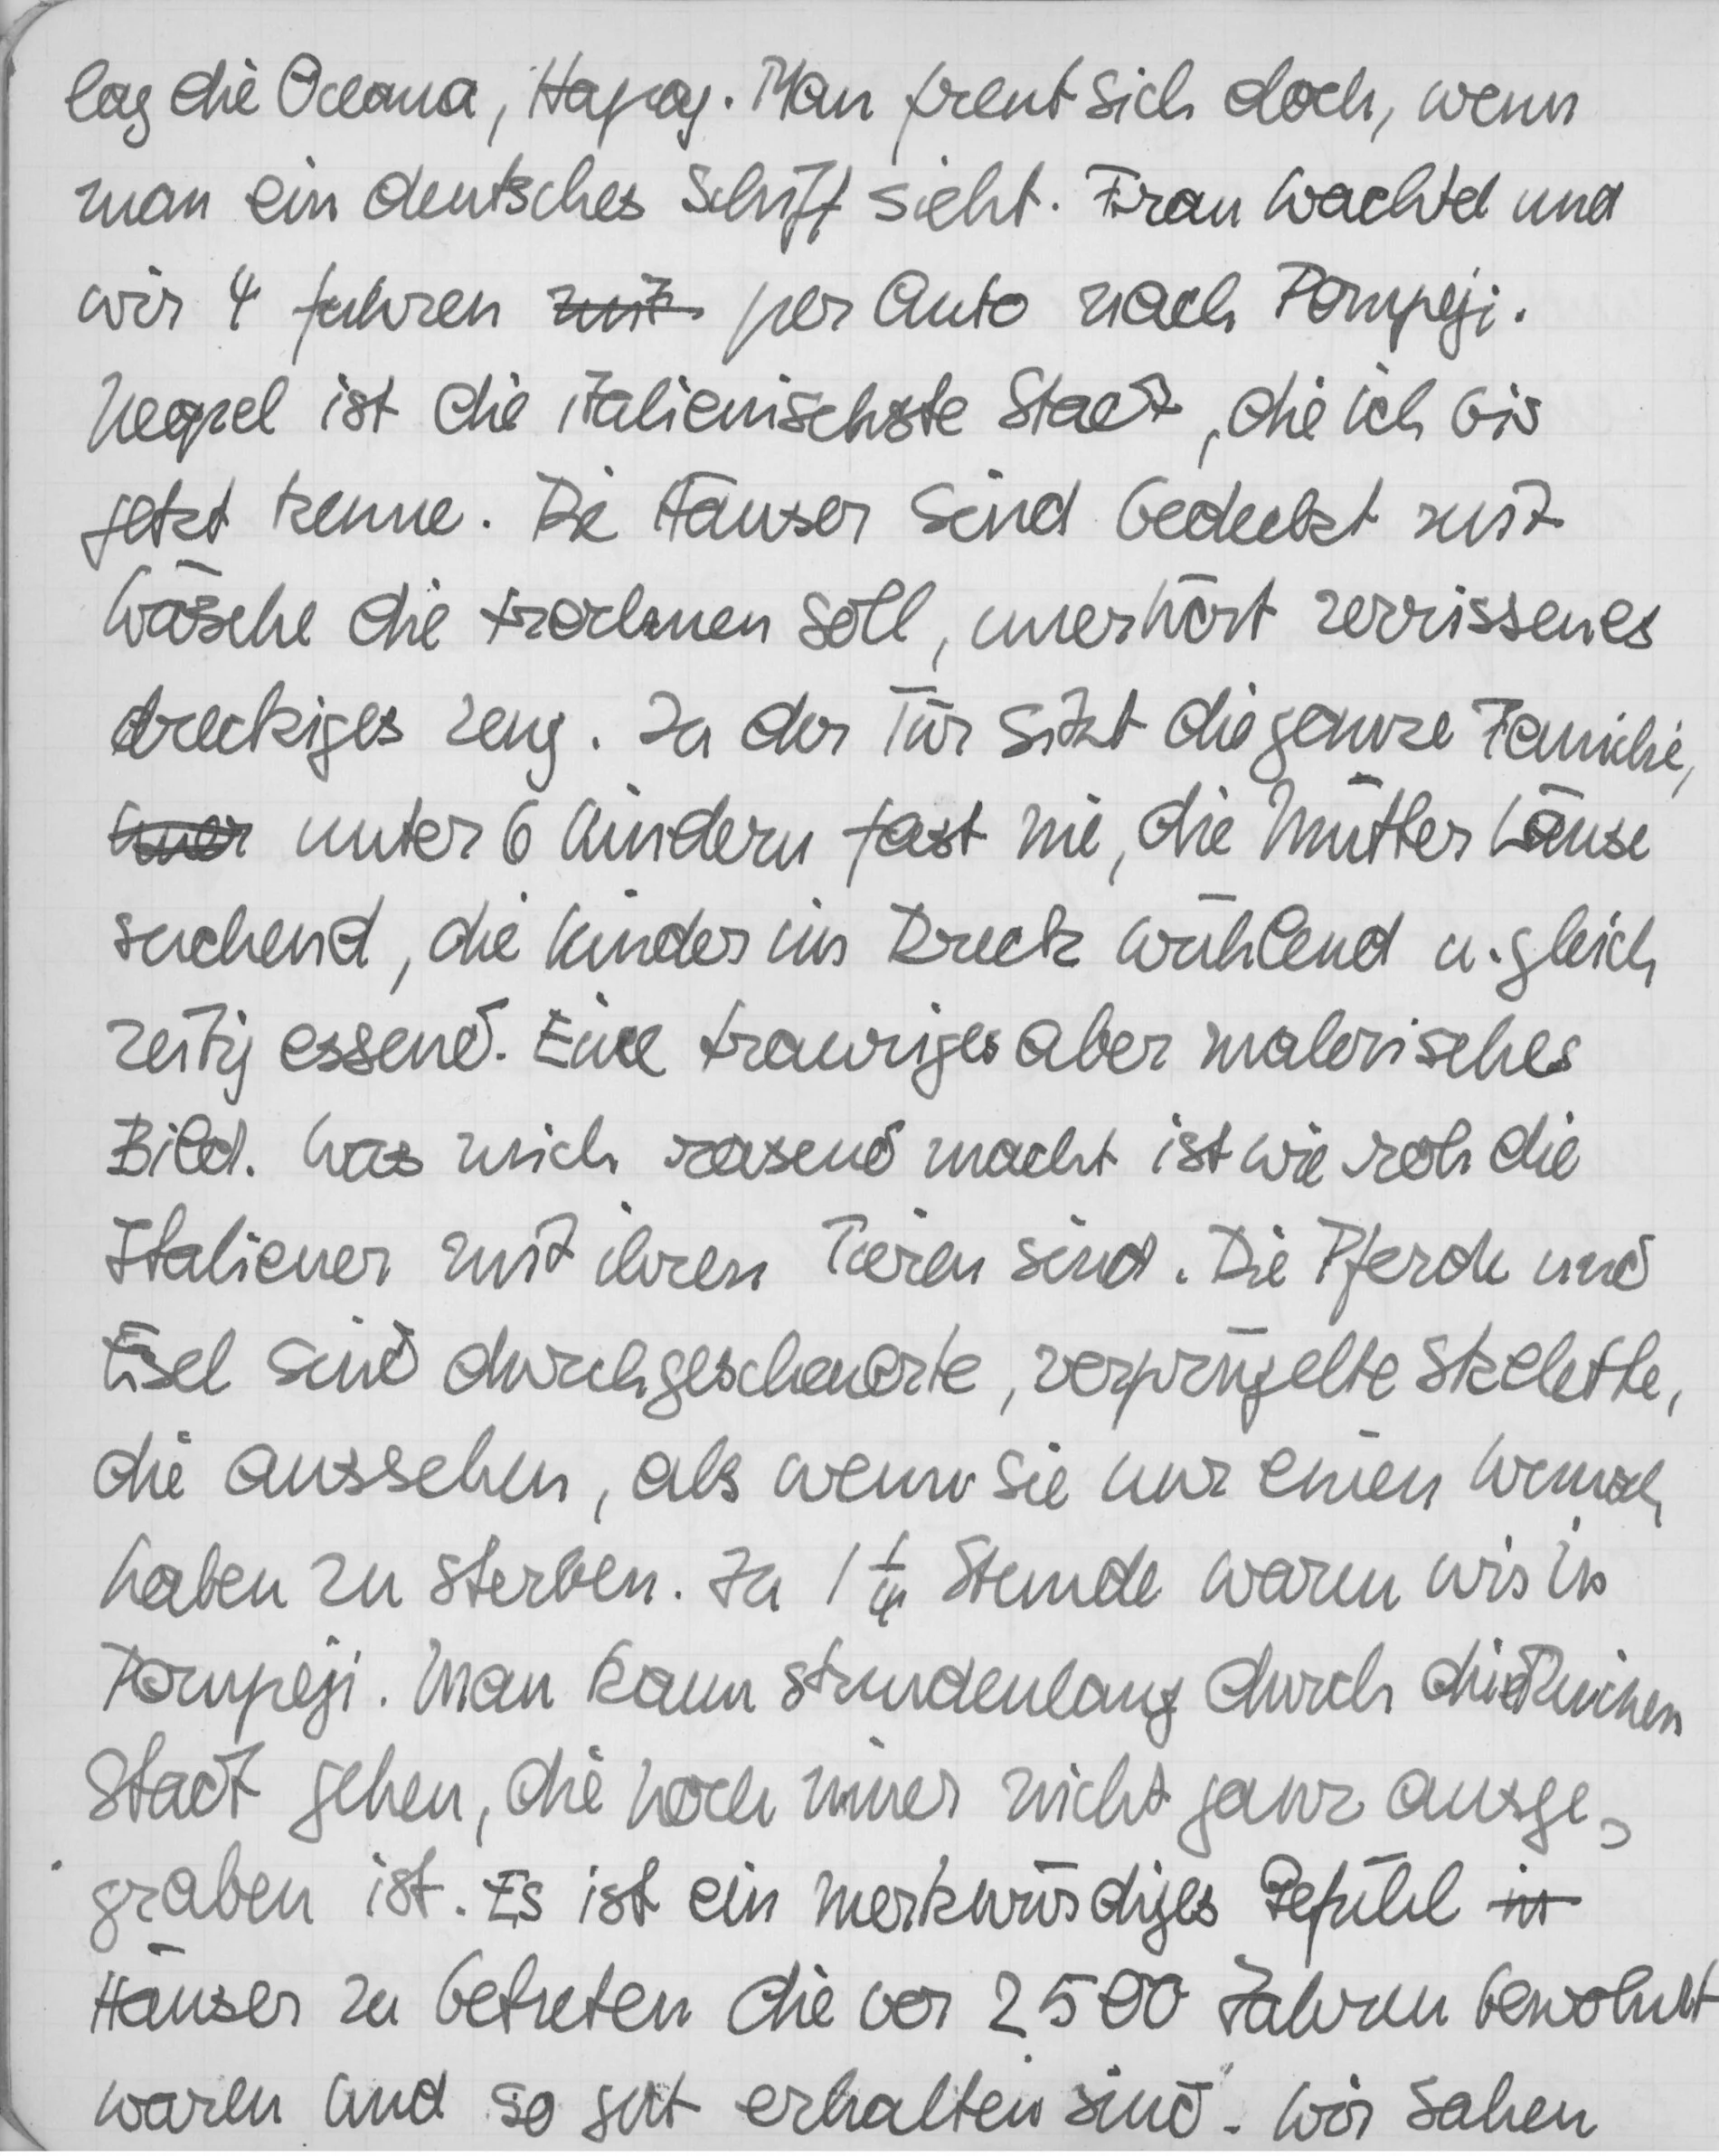 lag die Oceana, Hapag. Man freut sich doch, wenn
man ein deutsches Schiff sieht. Frau Wachtel und
wir 4 fuhren mit per Auto nach Pompeji.
Neapel ist die italienischste Stadt, die ich bis
jetzt kenne. Die Häuser sind bedeckt mit
Wäsche die trocknen soll, unerhört zerrissenes
dreckiges Zeug. In der Tür sitzt die ganze Familie,
unter 6 Kindern fast nie, die Mütter Läuse
suchend, die Kinder im Dreck wühlend u. gleich
zeitig essend. Eine trauriges aber malerisches
Bild. Was mich rasend macht ist wie roh die
Italiener mit ihren Tieren sind. Die Pferde und
Esel sind durchgescheuerte, verprügelte Skelette,
die aussehen, als wenn sie nur einen Wunsch
haben zu sterben. In 1 1/4 Stunde waren wir in
Pompeji. Man kann stundenlang durch die Ruinen
Stadt gehen, die noch immer nicht ganz ausge-
graben ist. Es ist ein merkwürdiges Gefühl in
Häuser zu betreten die vor 2500 Jahren bewohnt
waren und so gut erhalten sind. Wir sahen